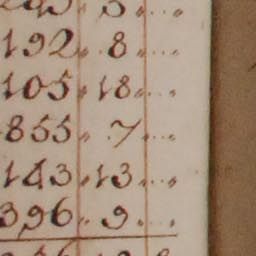 192. 8....
105. 18...
855. 7....
143. 13...
396. 9....